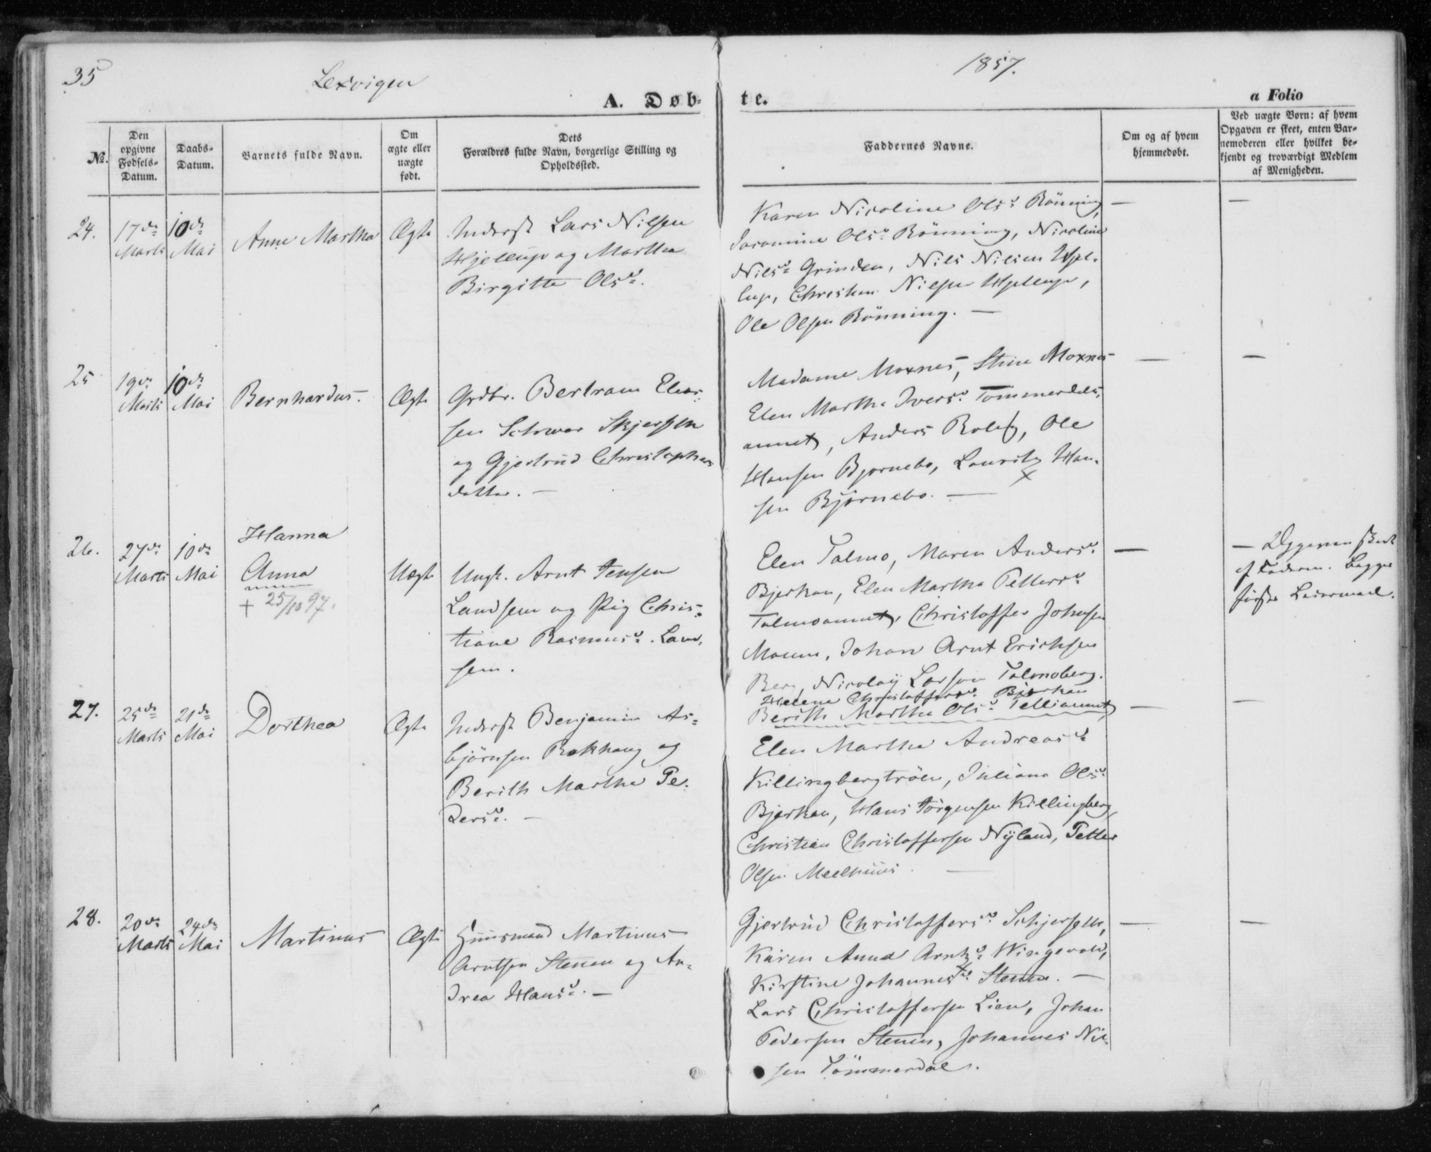 35
Lexvigen
1857.
A. Døb-
te.
a Folio
No.
Den opgivne Fødsels-Datum.
Daabs-Datum.
Barnets fulde Navn.
Om ægte eller uægte født.
Dets Forældres fulde Navn, borgerlige Stilling og Opholdssted.
Faddernes Navne.
Om og af hvem hjemmedøbt.
Ved uægte Børn: af hvem Opgaven er skeet, enten Barnemoderen eller hvilket bekjendt og troværdigt Medlem af Menigheden.
24.
17de Marts
10de Mai
Anne Martha
Ægte
Inderst Lars Nilsen
Hjellup og Martha
Birgitte Olsd.
Karen Nicoline Olsd. Rönning,
Olsd. Rönning, Nicoline
Nilsd. Grinden, Nils Nilsen Hjel-
lup, Christen Nilsen Hjellup,
Ole Olsen Rönning. —
—
—
25
19de Marts
10de Mai
Bernhardus.
Ægte
Grdbr. Bertram Elias-
sen Schwer
og Gjertrud Christophers
datter. —
Madame Moxnes, Stine Moxnes
Elen Martha Iversd. Tømmerdals-
aunet, Anders Rolef, Ole
Hansen Bjørnebo, Lauritz Han-
x
sen Bjørnebo. —
—
—
26.
27de Marts
10de Mai
Hanna
Anna
+ 25/10 97.
Uægte
Ungk. Arnt Jensen
Landsem og Pig Chris-
tiane Rasmusd. Land-
sem.
Elen Talmo, Maren Andersd.
Bjerkan, Elen Martha Pettersd.
Talmoaunet, Christoffer Johnsen
Moum, Johan Arnt Erichsen
Berg, Nicolay Larsen Talmoberg.
—
— Opgaven skeet
af Faderen. Begges
første Leiermaal.
27.
25de Marts
21de Mai
Dorthea
Ægte
Inderst Benjamin As-
bjørnsen Rokhaug og
Berith Martha Pe-
dersd. —
Helene Christoffersd. Bjerkan
Berith Martha Olsd.
Elen Martha Andreasd.
Killingbergtrøen, Juliana Olsd.
Bjerkan, Hans Jørgensen Killingberg,
Christian Christoffersen Nyland, Petter
Olsen Meelhuus. —
—
—
28.
20de Marts
24de Mai
Martinus
Ægte
Huusmand Martinus
Arntsen Stenen og An-
drea Hansd. —
Gjertrud Christoffersd.
Karen Anna Arntsd.
Kirstine Johannesd. —
Lars Christoffersen Lien, Johan
Pedersen Stenen, Johannes Nil-
sen Tömmerdal.
—
—